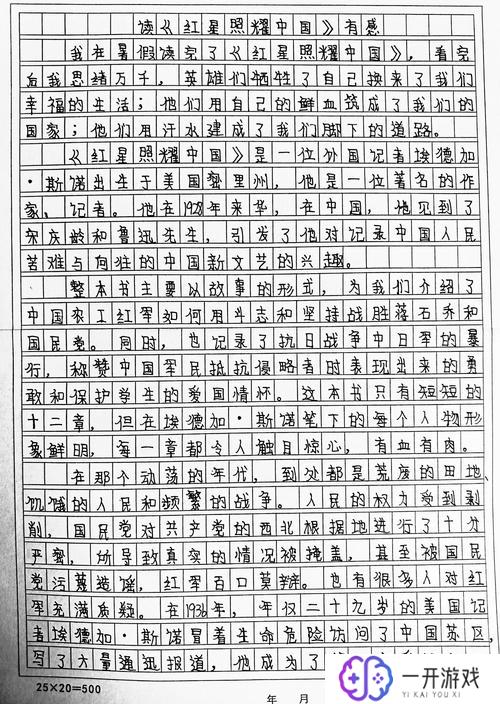 读《红星照耀中国》有感
我在暑假读完了《红星照耀中国》，看完
后我思绪万千，英雄们牺牲了自己换来了我们
幸福的生活；他们用自己的鲜血筑成了我们的
国家；他们用汗水建成了我们脚下的道路。
《红星照耀中国》是一位外国记者埃德加
·斯诺出生于美国密里州，他是一位著名的作
家、记者。他在1928年来华，在中国，他见到了
宋庆龄和鲁迅先生，引发了他对记录中国人民
苦难与向往的中国新文艺的兴趣。
整本书主要以故事的形式，为我们介绍了
中国农工红军如何用斗志和坚持战胜蒋石乔和
国民党。同时，也记录了抗日战争中日军的暴
行，称赞中国军民抵抗侵略者时表现出来的勇
敢和保护学生的爱国情怀。这本书只有短短的
十二章，但在埃德加·斯诺笔下的每个人物形
象鲜明，每一章都令人触目惊心，有血有肉。
在那个动荡的年代，到处都是荒废的田地、
饥饿的人民和频繁的战争。人民的权力受到剥
削，国民党对共产党的西北根据地进行了十分
严密，所导致真实的情况被掩盖，甚至被国民
党污蔑造谣，红军百口莫辩。也有很多人对红
军充满质疑。在1936年，年仅二十九岁的美国记
者埃德加·斯诺冒着生命危险访问了中国苏区
写了大量通迅报道，他成为了
25×20=500
年 月
一开游戏
YI KAI YOU XI